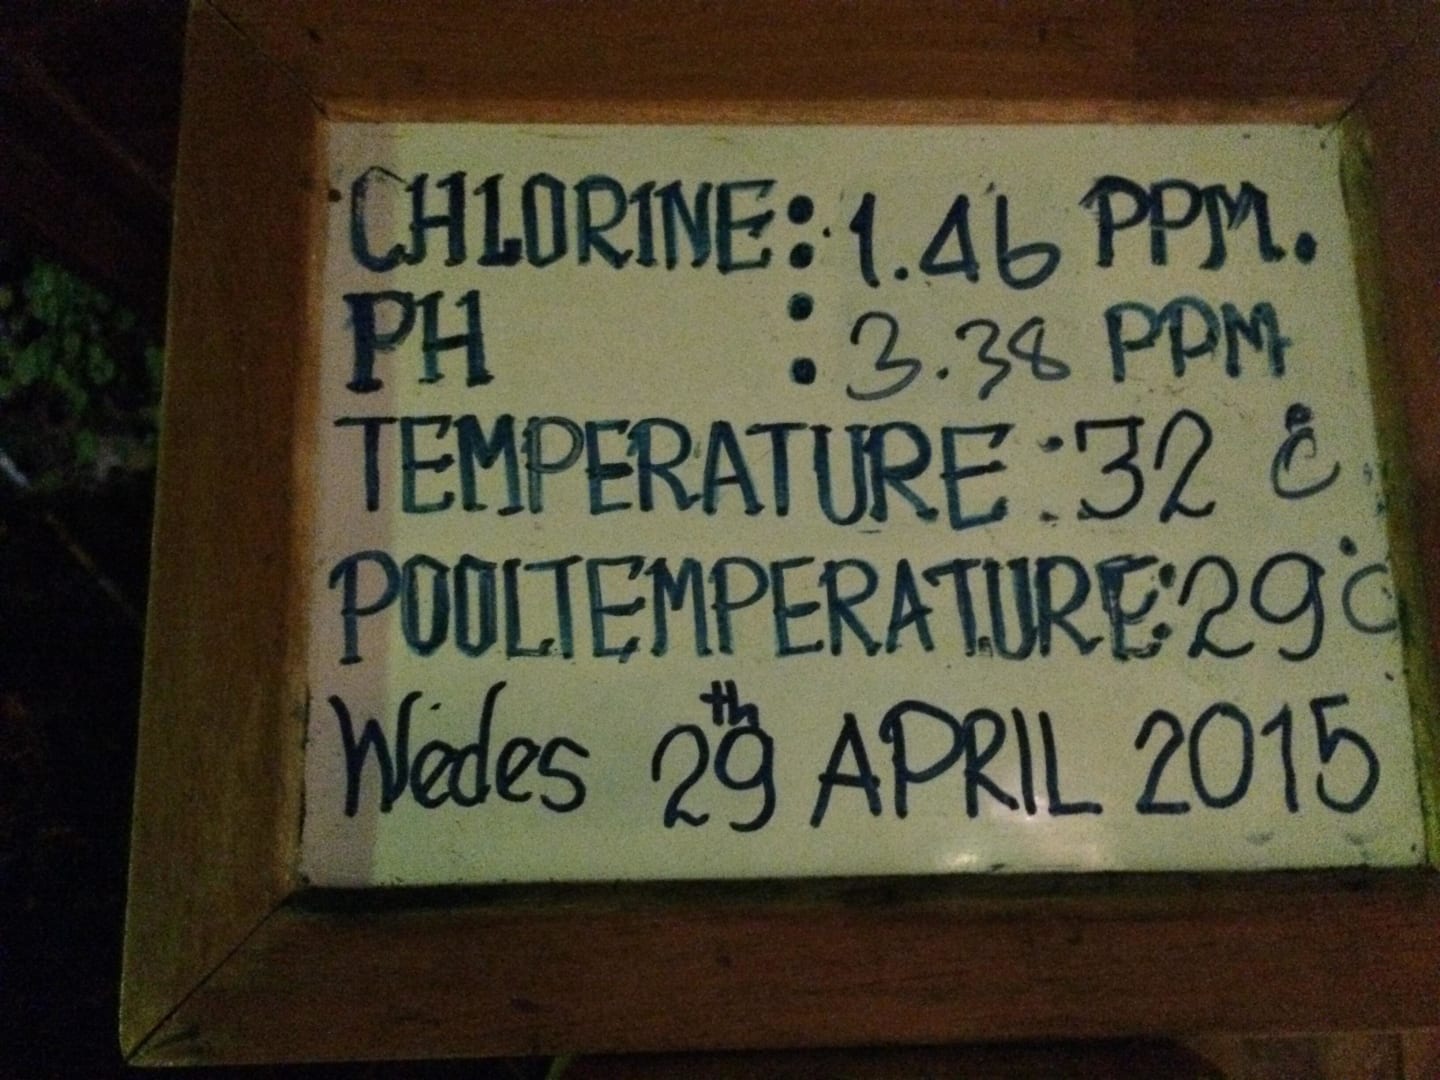 CHLORINE: 1.46 PPM.
PH : 3.38 PPM
TEMPERATURE: 32 °C
POOLTEMPERATURE: 29°C
Wedes 29th APRIL 2015